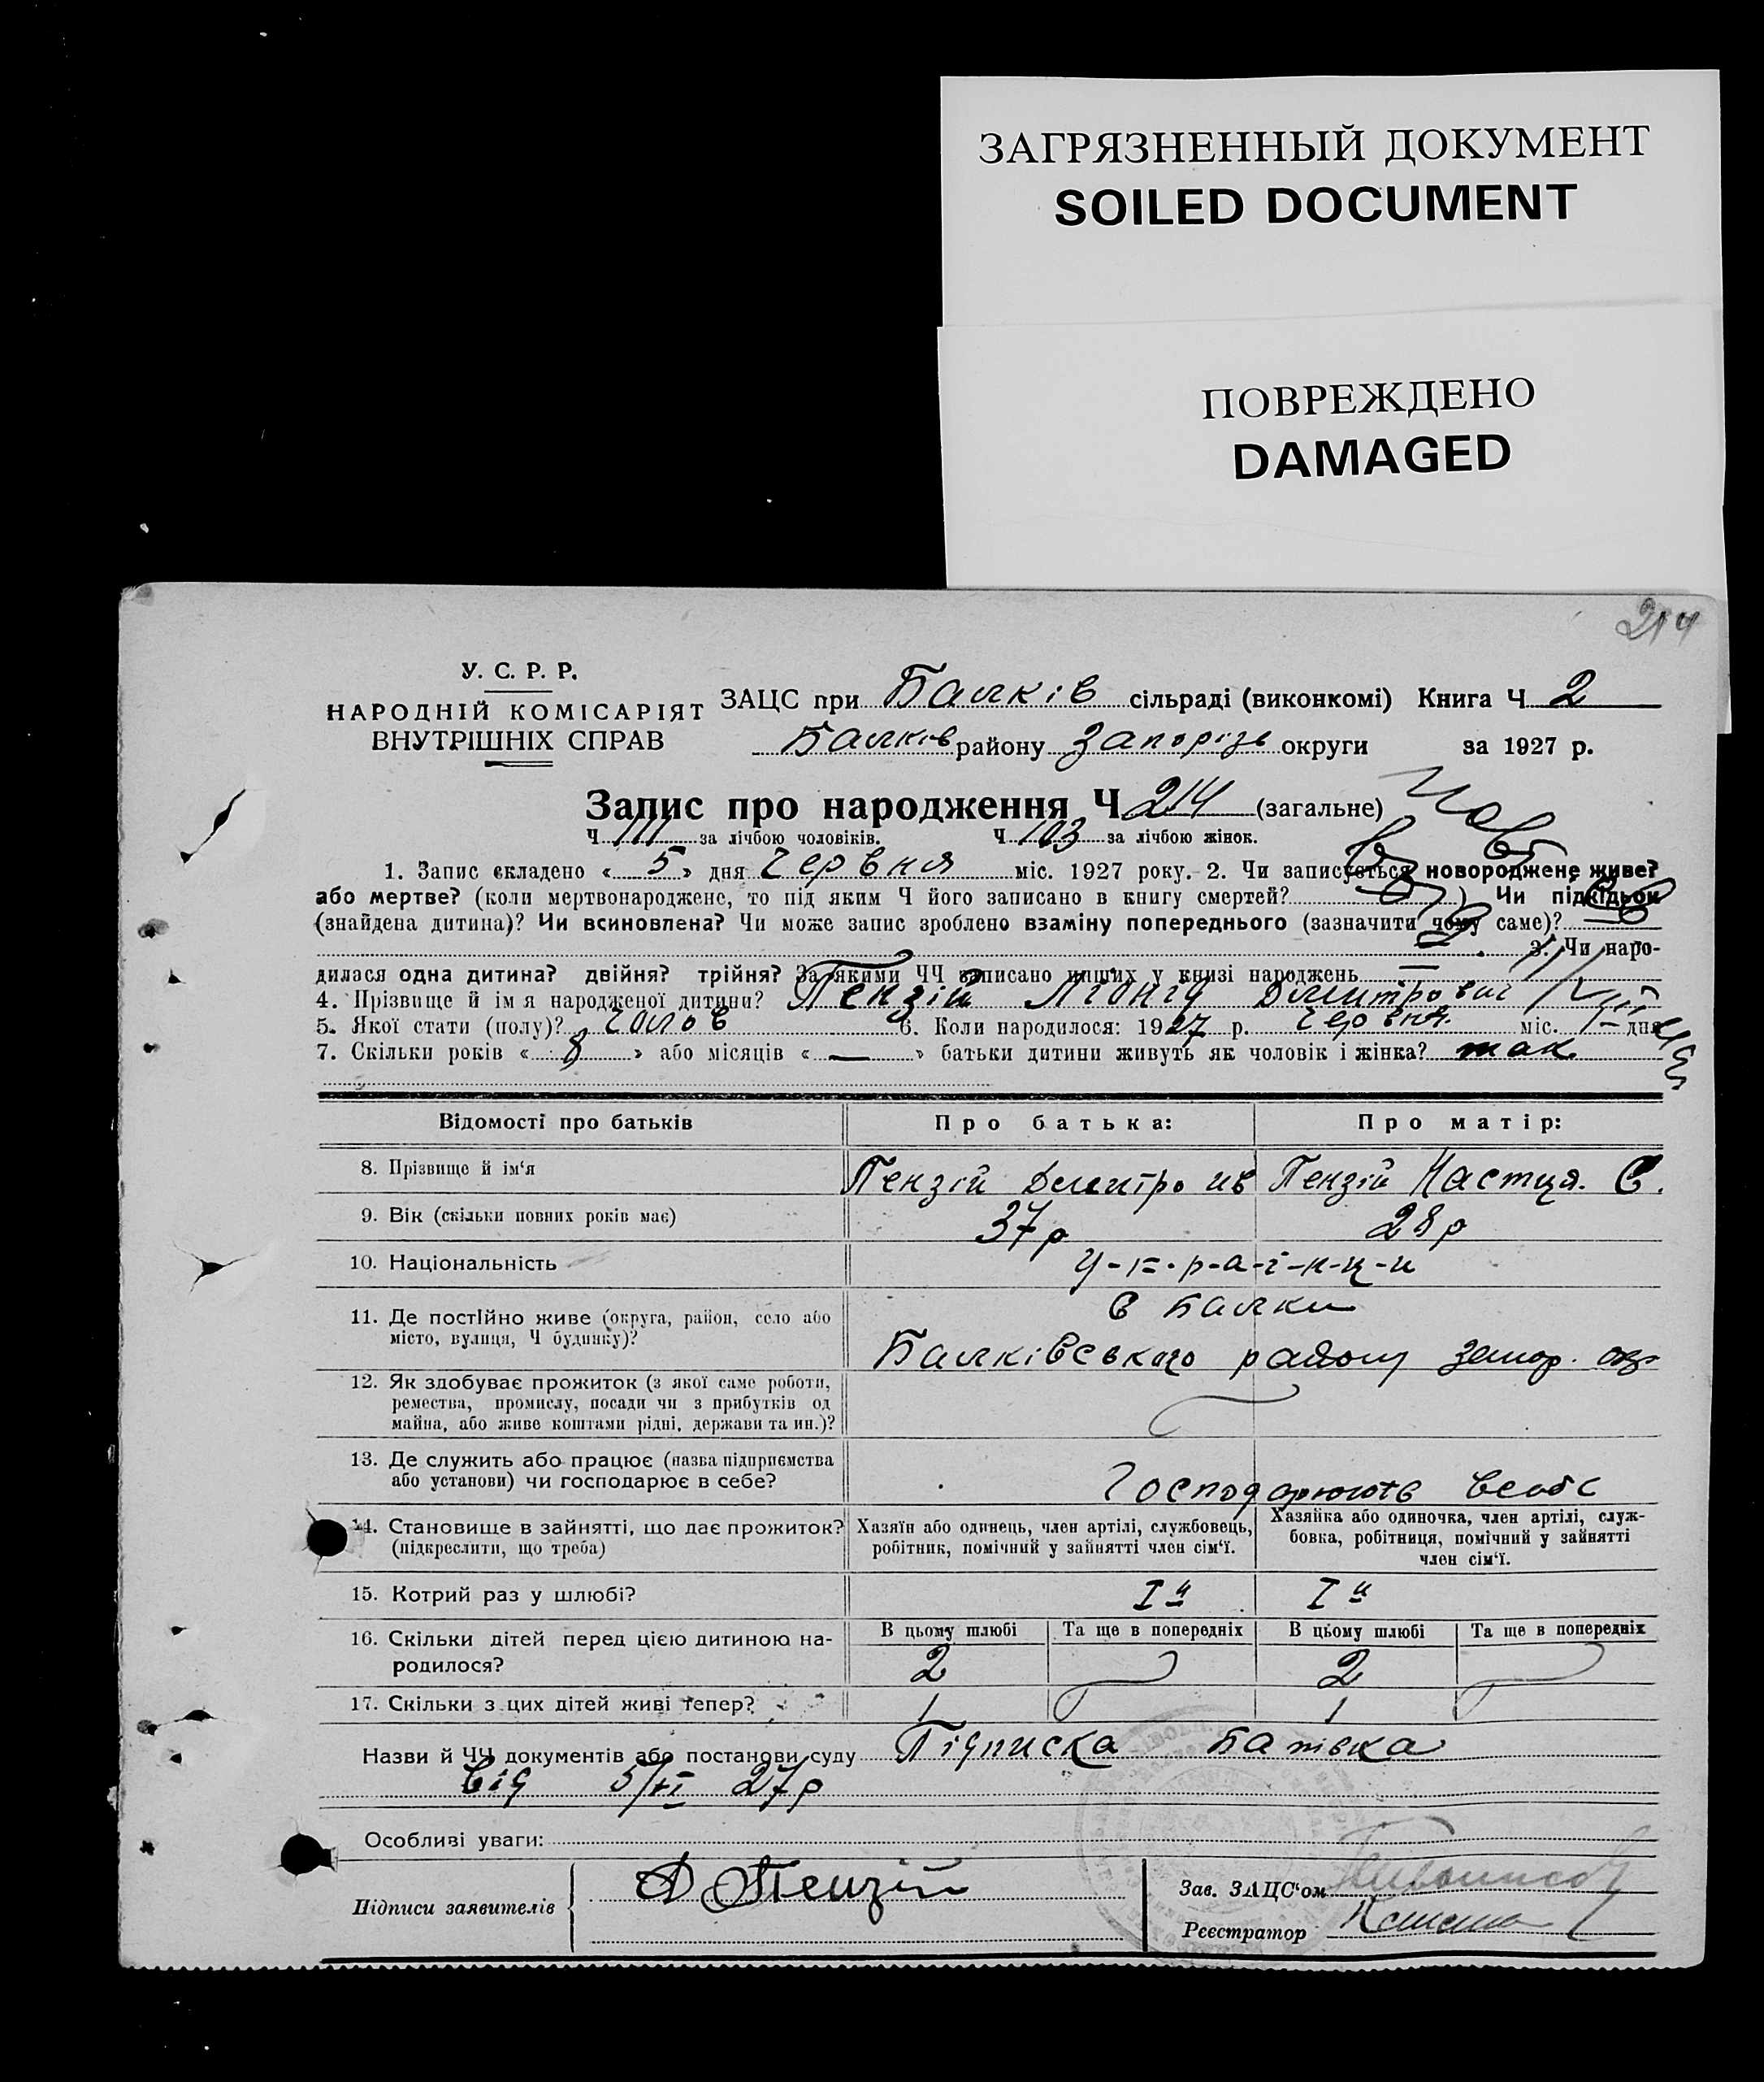 ЗАГРЯЗНЕННЫЙ ДОКУМЕНТ
SOILED DOCUMENT
ПОВРЕЖДЕНО
DAMAGED
214
У. С. Р. Р.
НАРОДНІЙ КОМІСАРІЯТ
ВНУТРІШНІХ СПРАВ
ЗАЦС при Балків сільраді (виконкомі) Книга Ч 2
Балків району Запорізь округи за 1927 р.
Запис про народження Ч 214 (загальне)
Ч 111 за лічбою чоловіків. Ч 103 за лічбою жінок.
1. Запис складено «5» дня Червня міс. 1927 року. 2. Чи записується новороджене живе?
або мертве? (коли мертвонароджене, то під яким Ч його записано в книгу смертей?) Чи підкідьок
(знайдена дитина)? Чи всиновлена? Чи може запис зроблено взаміну попереднього (зазначити чому саме)?
3. Чи наро-
дилася одна дитина? двійня? трійня? За якими ЧЧ записано инших у книзі народжень —
4. Прізвище й ім я народженої дитини? Пензій Дмитрович
5. Якої стати (полу)? чолов 6. Коли народилося: 1927 р. червня міс. дня
7. Скільки років «8» або місяців «—» батьки дитини живуть як чоловік і жінка? так
Відомості про батьків Про батька: Про матір:
8. Прізвище й ім‘я Пензій Дмитро ив Пензій Настця. С.
9. Вік (скільки повних років має) 37 р 28 р
10. Національність у-к-р-а-ї-н-ц-и
11. Де постійно живе (округа, район, село або
місто, вулиця, Ч будинку)?
с Балки
Балківського району запор. окр
12. Як здобуває прожиток (з якої саме роботи,
ремества, промислу, посади чи з прибутків од
майна, або живе коштами рідні, держави та ин.)?
13. Де служить або працює (назва підприємства
або установи) чи господарює в себе?
Господарюють в себе
14. Становище в зайнятті, що дає прожиток?
(підкреслити, що треба)
Хазяїн або одинець, член артілі, службовець,
робітник, помічний у зайнятті член сім‘ї.
Хазяйка або одиночка, член артілі, служ-
бовка, робітниця, помічний у зайнятті
член сім‘ї.
15. Котрий раз у шлюбі? Iй Iй
16. Скільки дітей перед цією дитиною на-
родилося?
В цьому шлюбі Та ще в попередніх В цьому шлюбі Та ще в попередніх
2 2
17. Скільки з цих дітей живі тепер? 1 1
Назви й ЧЧ документів або постанови суду Підписка батька
від 5/VI 27 р
Особливі уваги:
Підписи заявителів Д Пензій
Зав. ЗАЦС‘ом
Реєстратор